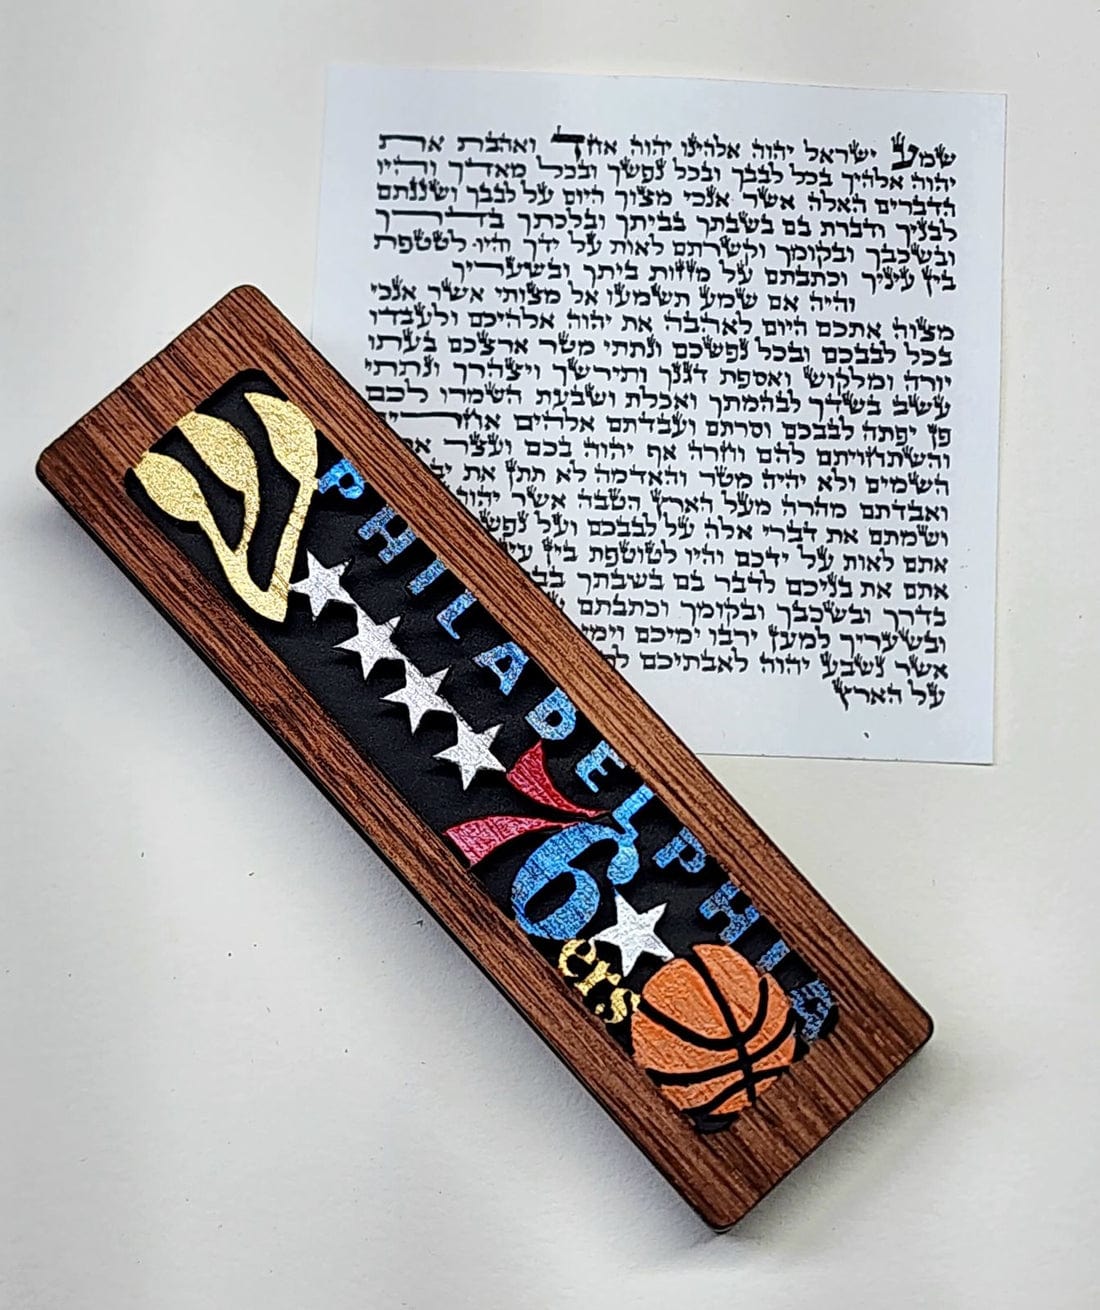 שמע ישראל יהוה אלהינו יהוה אחד ואהבת את
יהוה אלהיך בכל לבבך ובכל נפשך ובכל מאדך והיו
הדברים האלה אשר אנכי מצוך היום על לבבך ושננתם
לבניך ודברת בם בשבתך בביתך ובלכתך בדרך
ובשכבך ובקומך וקשרתם לאות על ידך והיו לטטפת
בין עיניך וכתבתם על מזזות ביתך ובשעריך
והיה אם שמע תשמעו אל מצותי אשר אנכי
מצוה אתכם היום לאהבה את יהוה אלהיכם ולעבדו
בכל לבבכם ובכל נפשכם ונתתי מטר ארצכם בעתו
יורה ומלקוש ואספת דגנך ותירשך ויצהרך ונתתי
עשב בשדך לבהמתך ואכלת ושבעת השמרו לכם
פן יפתה לבבכם וסרתם ועבדתם אלהים
והשתחויתם להם וחרה אף יהוה בכם ועצר את
השמים ולא יהיה מטר והאדמה לא תתן את
ואבדתם מהרה מעל הארץ הטבה אשר יהוה
ושמתם את דברי אלה על לבבכם ועל
אתם לאות על ידכם והיו לטוטפת בין
אתם את בניכם לדבר בם בשבתך
בדרך ובשכבך ובקומך וכתבתם
ובשעריך למען ירבו ימיכם
אשר נשבע יהוה לאבתיכם
על הארץ
ש
PHILADELPHIA
76
ers